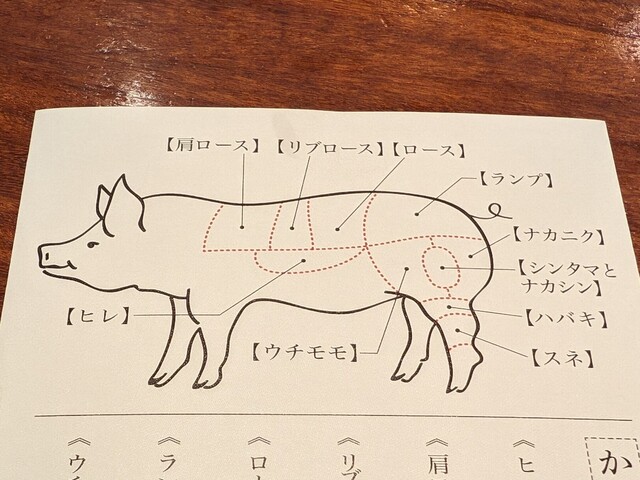 【肩ロース】【リブロース】【ロース】
【ランプ】
【ナカニク】
【シンタマと
ナカシン】
【ヒレ】
【ハバキ】
【ウチモモ】
【スネ】
か
《ヒ
《肩
《リブ
《ロ
《ラ
《ウ